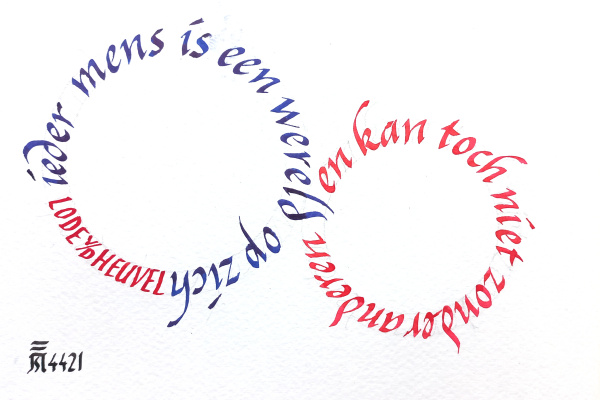 ieder mens is een wereld op zich
LODE v/d HEUVEL
en kan toch niet zonder anderen
4421